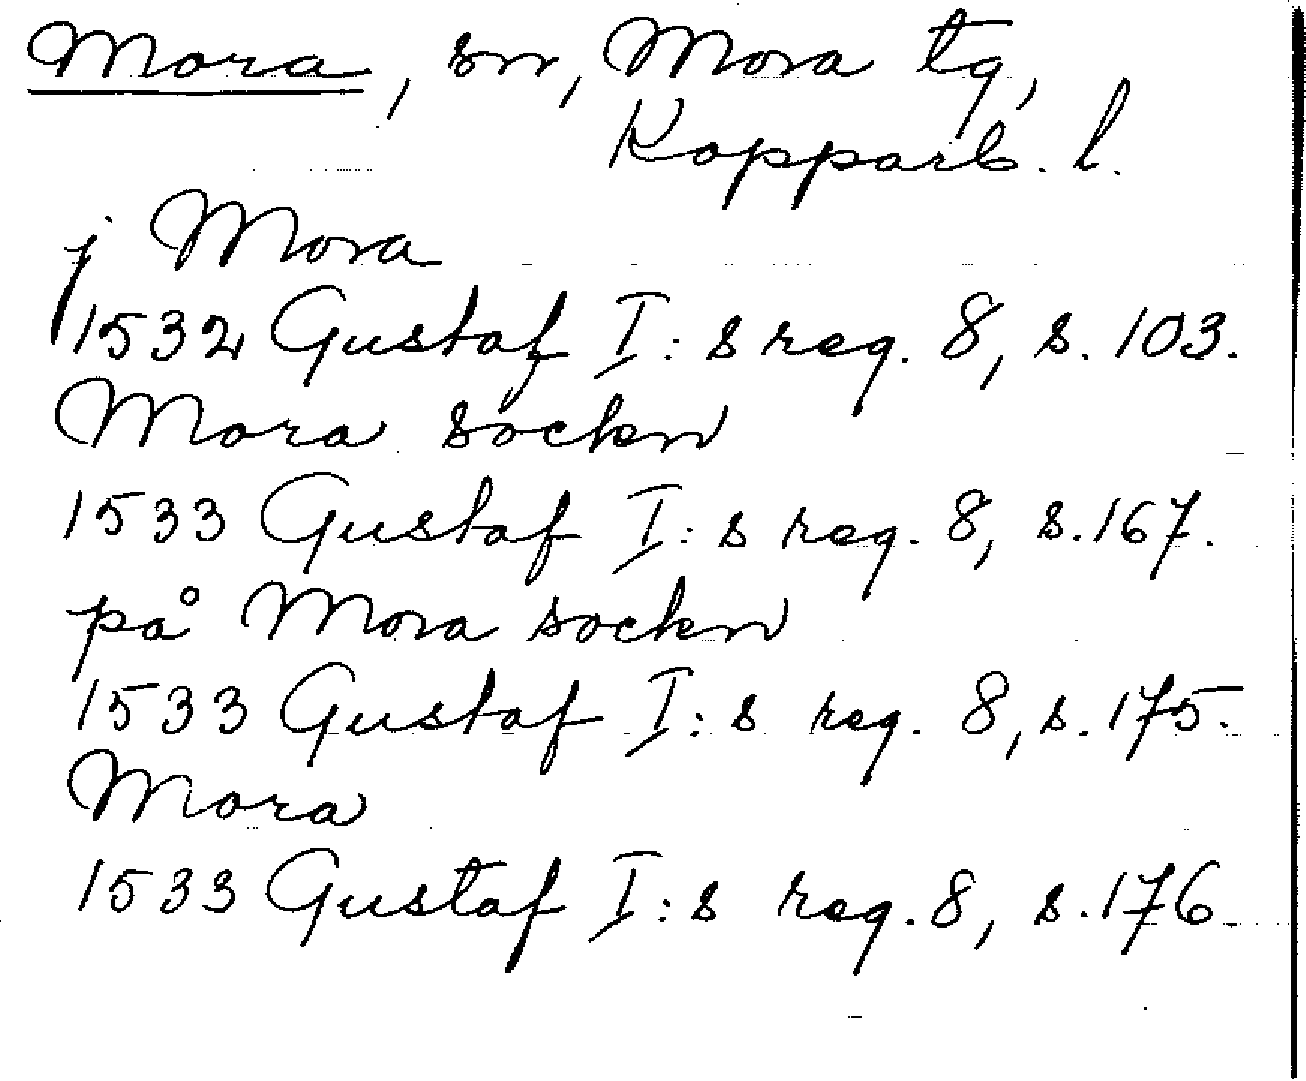 Mora, sn, Mora tg,
Kopparb. l.
j Mora
1532 Gustaf I:s reg. 8, s. 103.
Mora sockn
1533 Gustaf I:s reg. 8, s. 167.
på Mora sockn
1533 Gustaf I:s reg. 8, s. 175.
Mora
1533 Gustaf I:s reg. 8, s. 176